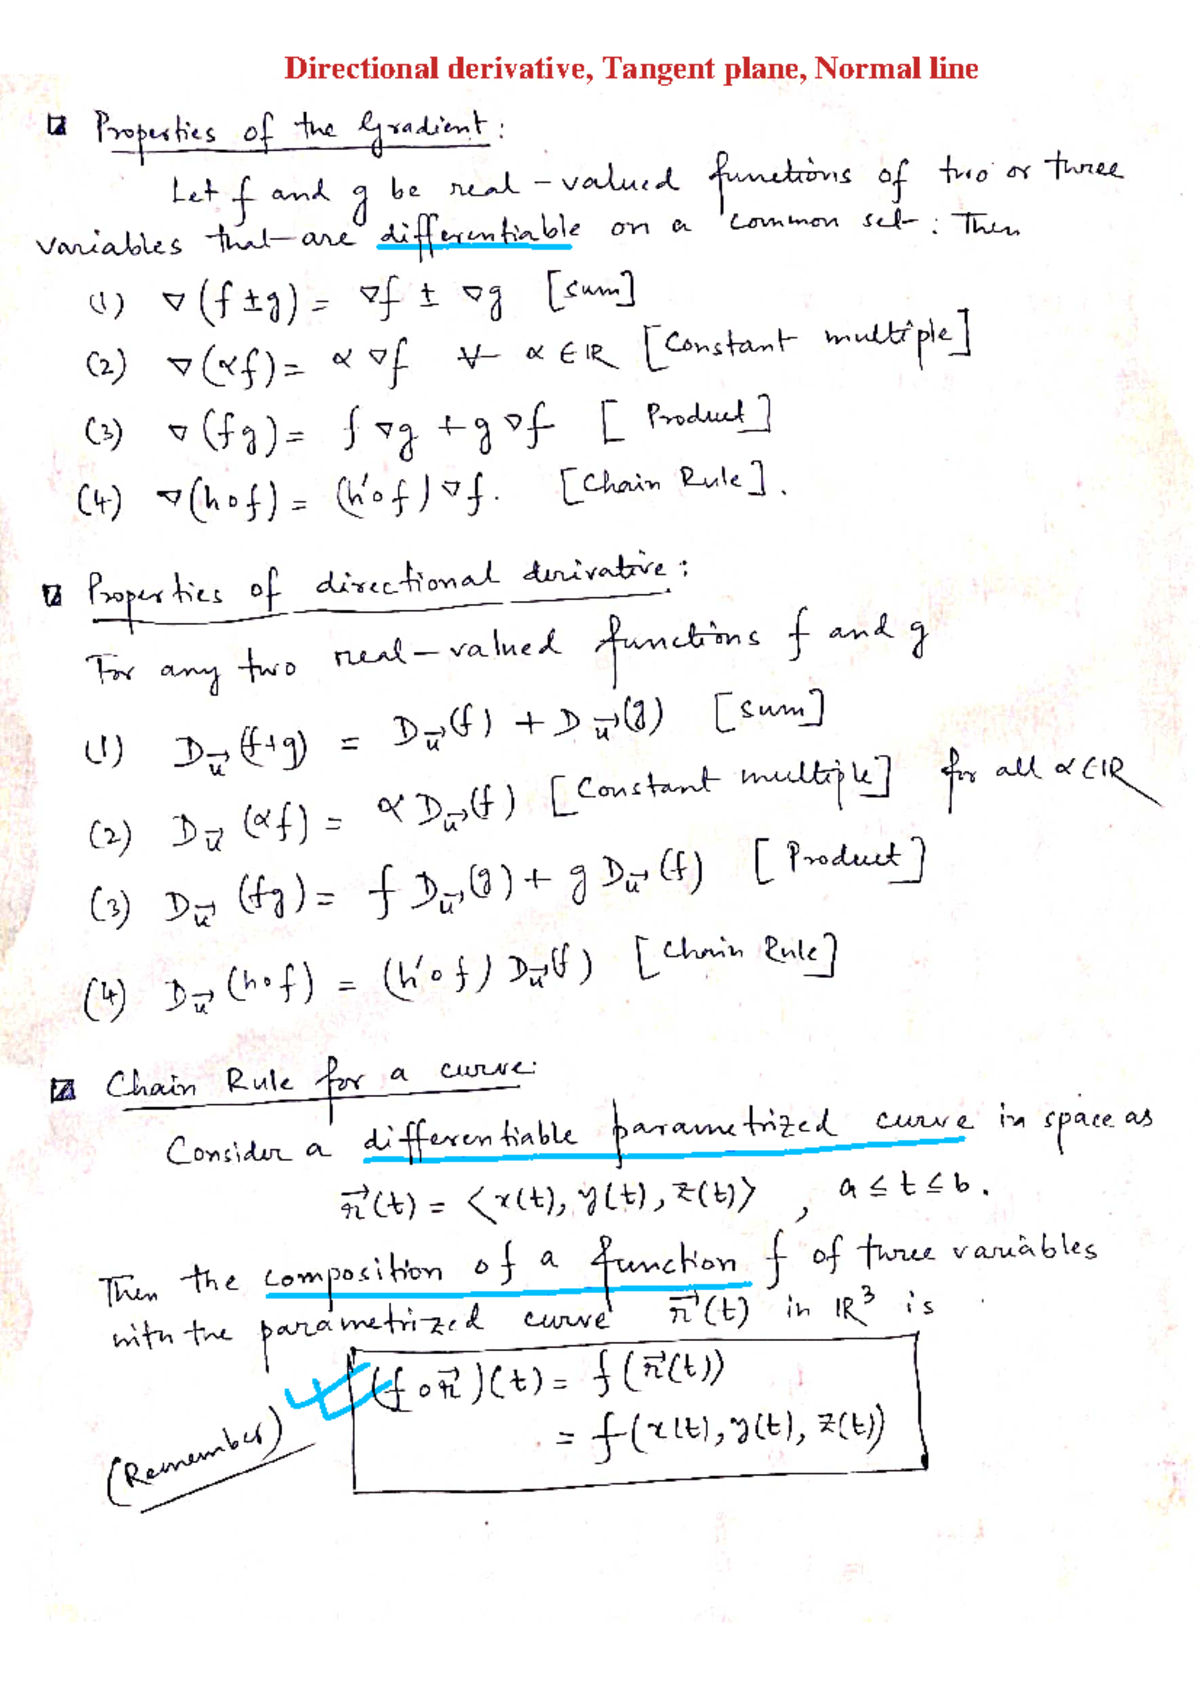 Directional derivative, Tangent plane, Normal line
Properties of the Gradient:
Let f and g be real-valued functions of two or three
variables that are differentiable on a common set. Then
(1) ∇(f ± g) = ∇f ± ∇g [sum]
(2) ∇(αf) = α∇f ∀ α ∈ IR [Constant multiple]
(3) ∇(fg) = f∇g + g∇f [Product]
(4) ∇(h∘f) = (h'∘f)∇f. [Chain Rule].
Properties of directional derivative:
For any two real-valued functions f and g
(1) D_u⃗ (f+g) = D_u⃗(f) + D_u⃗(g) [sum]
(2) D_u⃗ (αf) = α D_u⃗(f) [Constant multiple] for all α ∈ IR
(3) D_u⃗ (fg) = f D_u⃗(g) + g D_u⃗(f) [Product]
(4) D_u⃗ (h∘f) = (h'∘f) D_u⃗(f) [Chain Rule]
Chain Rule for a curve:
Consider a differentiable parametrized curve in space as
r⃗(t) = ⟨x(t), y(t), z(t)⟩ , a ≤ t ≤ b.
Then the composition of a function f of three variables
with the parametrized curve r⃗(t) in IR³ is
(f∘r⃗)(t) = f(r⃗(t))
= f(x(t), y(t), z(t))
(Remember)